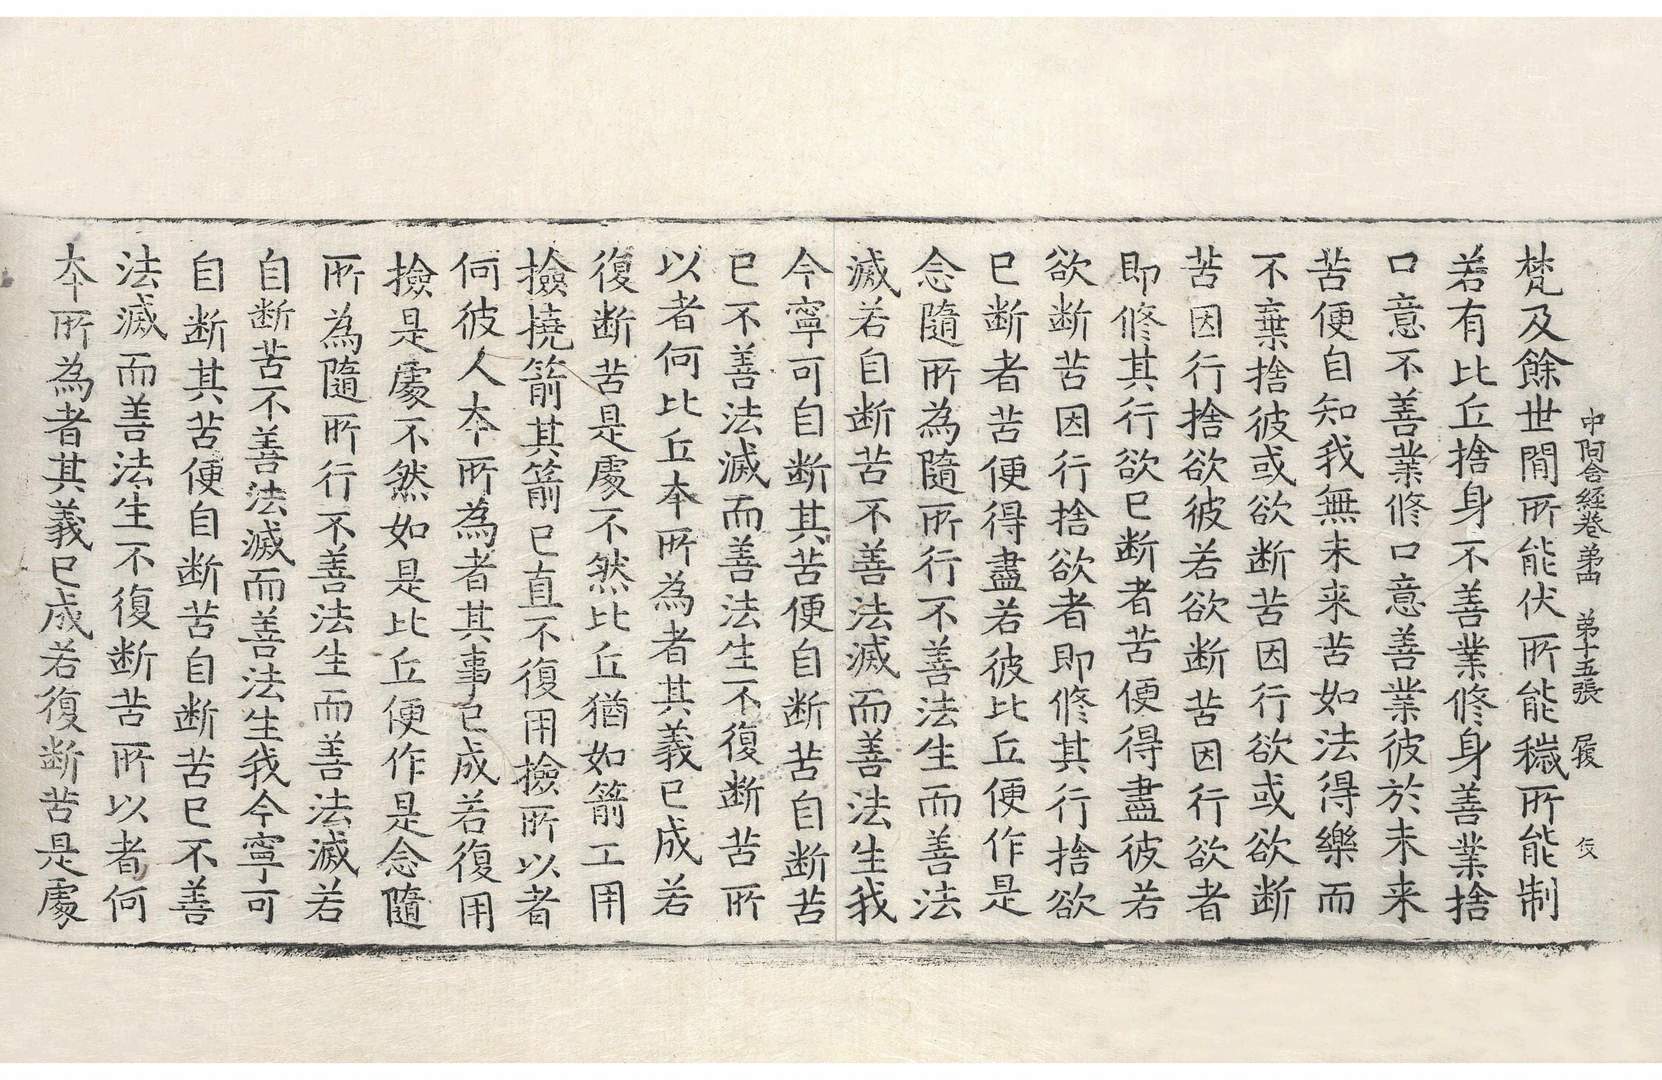 中阿含經卷第四 第十五張 履
梵及餘世間所能伏所能穢所能制
若有比丘捨身不善業修身善業捨
口意不善業修口意善業彼於未来
苦便自知我無未来苦如法得樂而
不棄捨彼或欲断苦因行欲或欲断
苦因行捨欲彼若欲断苦因行欲者
即修其行欲已断者苦便得盡彼若
欲断苦因行捨欲者即修其行捨欲
已断者苦便得盡若彼比丘便作是
念隨所為隨所行不善法生而善法
滅若自断苦不善法滅而善法生我
今寧可自断其苦便自断苦自断苦
已不善法滅而善法生不復断苦所
以者何比丘夲所為者其義已成若
復断苦是處不然比丘猶如箭工用
撿撓箭其箭已直不復用撿所以者
何彼人夲所為者其事已成若復用
撿是處不然如是比丘便作是念隨
所為隨所行不善法生而善法滅若
自断苦不善法滅而善法生我今寧可
自断其苦便自断苦自断苦已不善
法滅而善法生不復断苦所以者何
夲所為者其義已成若復断苦是處